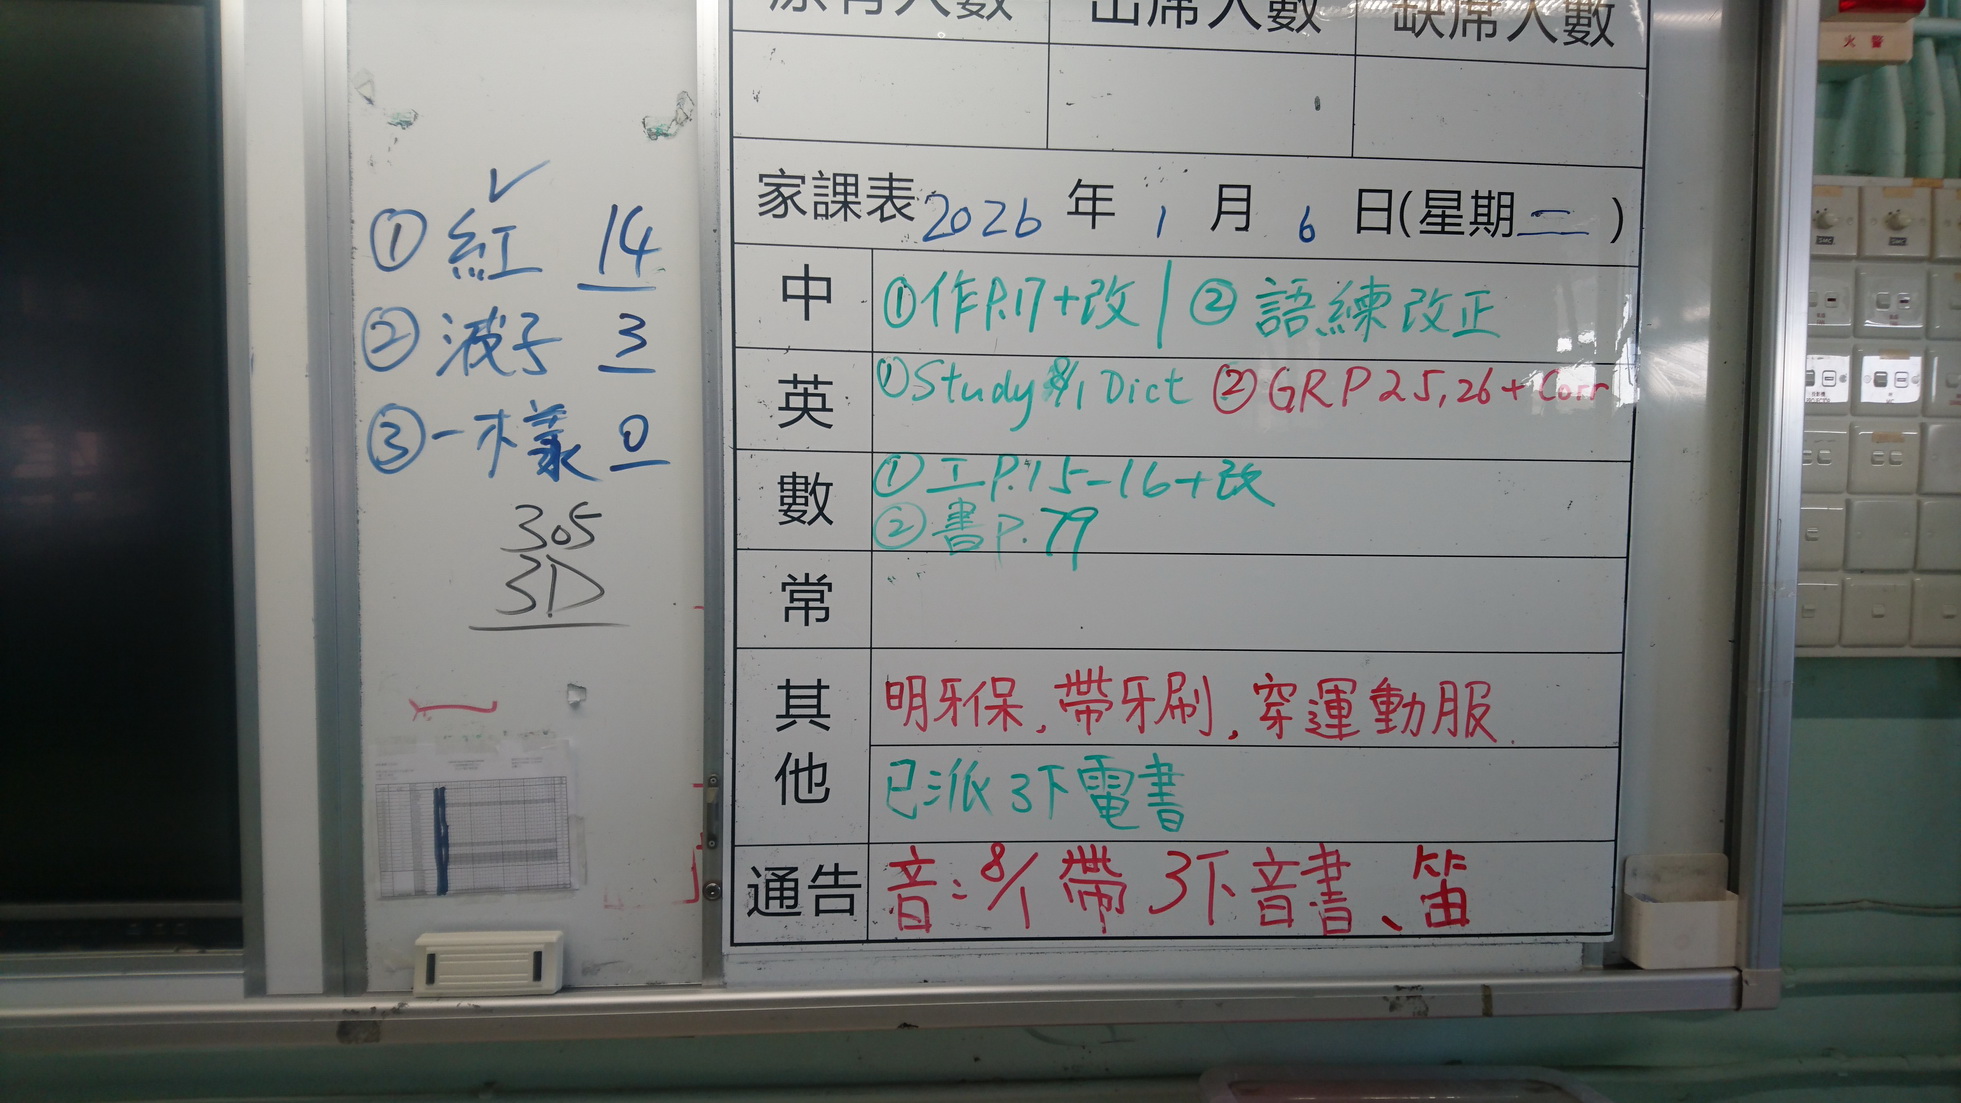 原有人數 出席人數 缺席人數
① 紅 14
② 波子 3
③ 一樣 0
305
3D
家課表 2026 年 1 月 6 日(星期二)
中 ①作P.17+改 | ② 語練改正
英 ①Study 8/1 Dict ②GR P25,26+Corr
數 ①工P.15-16+改
②書P.79
常
其他 明牙保,帶牙刷,穿運動服
已派3下電書
通告 音:8/1 帶 3下音書、笛
火警